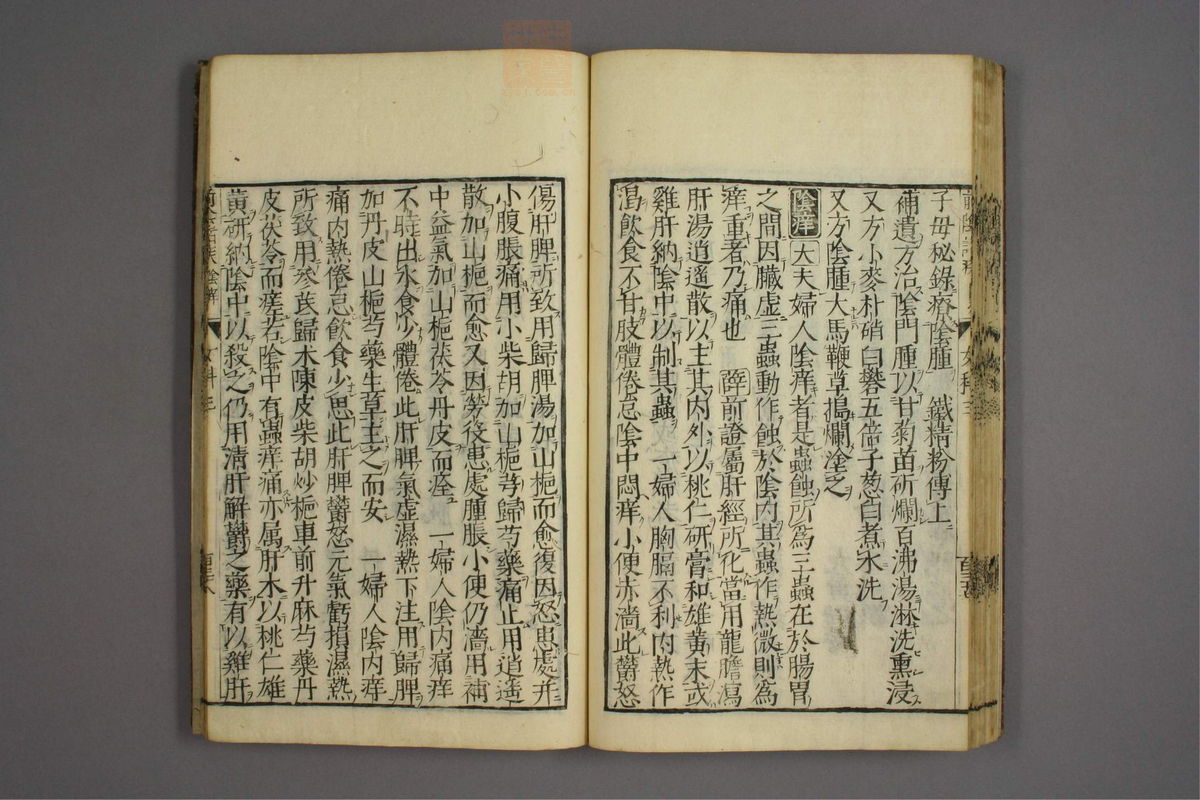 子母秘錄療陰腫 鐵精粉傳上
補遺方治陰門腫以甘菊苗研爛百沸湯淋洗熏浸
又方小麥朴硝白礬五倍子葱白煮水洗
又方陰腫大馬鞭草搗爛塗之
陰痒 大夫婦人陰痒者是蟲蝕所爲三蟲在於腸胃
之間因臟虛三蟲動作蝕於陰內其蟲作熱微則爲
痒重者乃痛也 薛前證屬肝經所化當用龍膽瀉
肝湯逍遙散以主其內外以桃仁研膏和雄黃末或
雞肝納陰中以制其蟲 一婦人胸膈不利內熱作
渴飲食不甘肢體倦怠陰中悶痒小便赤濇此鬱怒
傷肝脾所致用歸脾湯加山梔而愈復因怒患處并
小腹脹痛用小柴胡加山梔芎歸芍藥痛止用逍遙
散加山梔而愈又因勞役患處腫脹小便仍濇用補
中益氣加山梔茯苓丹皮而痊 一婦人陰內痛痒
不時出水食少體倦此肝脾氣虛濕熱下注用歸脾
加丹皮山梔芍藥生草主之而安 一婦人陰內痒
痛內熱倦怠飲食少思此肝脾鬱怒元氣虧損濕熱
所致用參芪歸朮陳皮柴胡炒梔車前升麻芍藥丹
皮茯苓而瘥若陰中有蟲痒痛亦属肝木以桃仁雄
黃研納陰中以殺之仍用清肝解鬱之藥有以雞肝
女科三